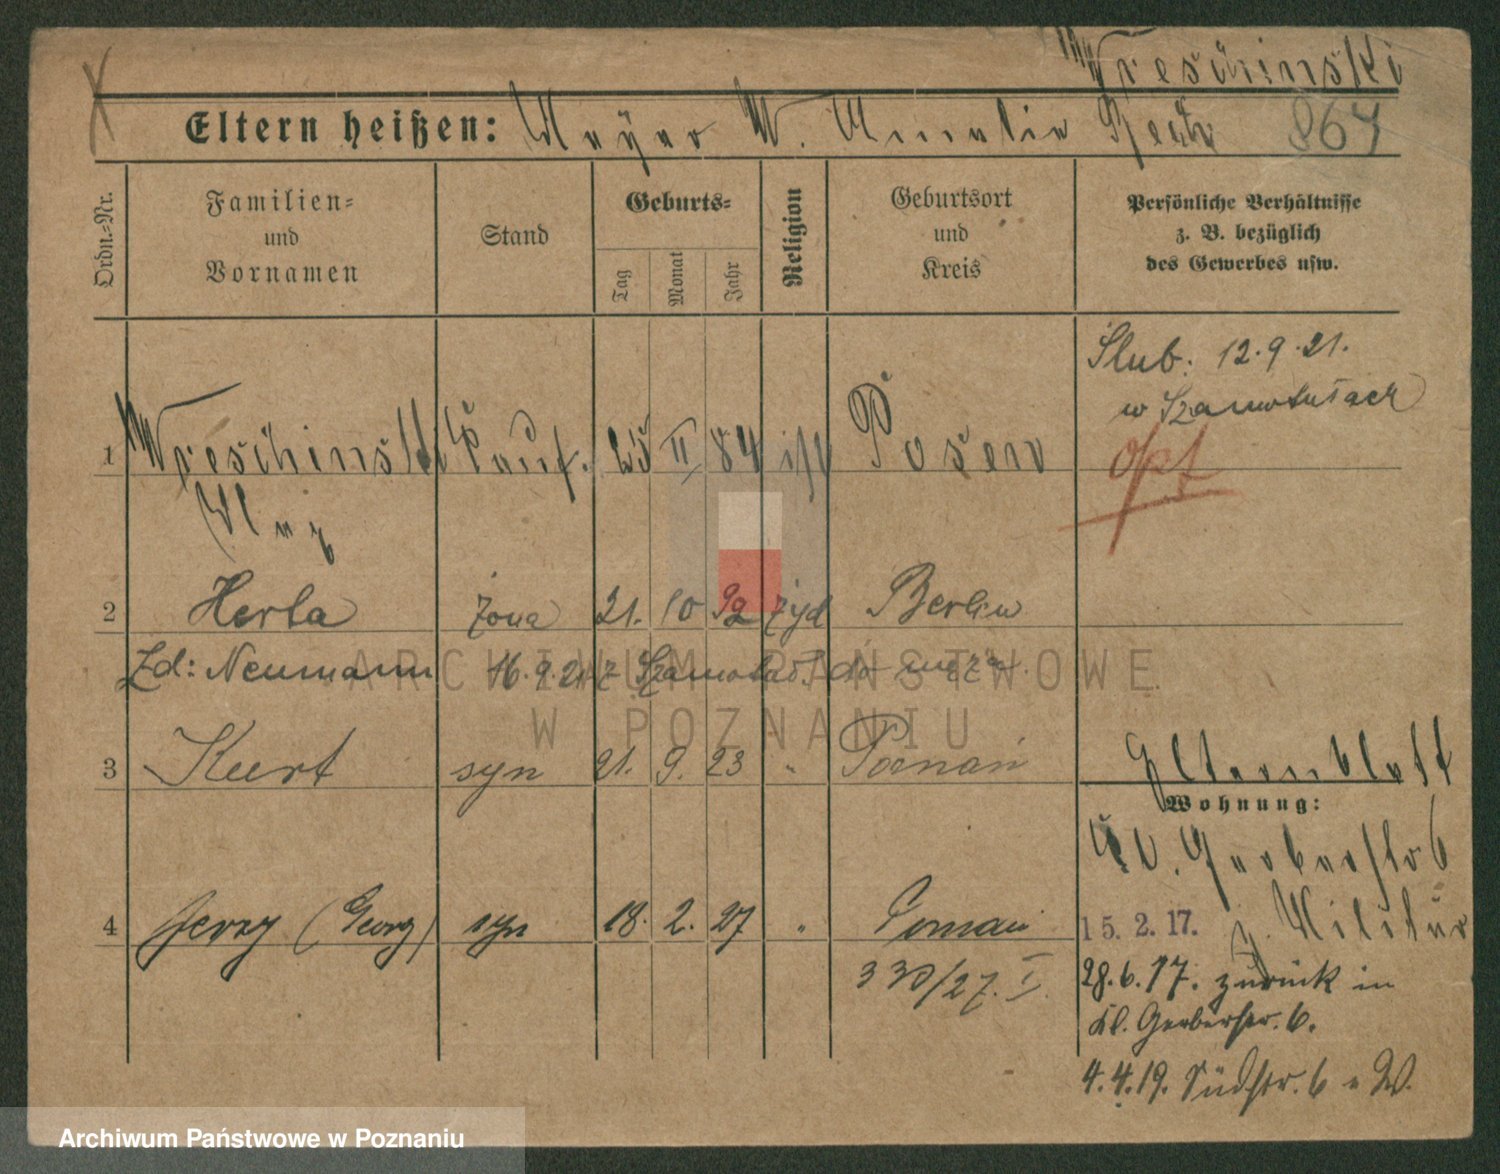 Wreschinski
Eltern heißen: Meyer W. Amalie 864
Ordn.-Nr.
Familien-
und
Vornamen
Stand
Geburts-
Tag
Monat
Jahr
Religion
Geburtsort
und
Kreis
Persönliche Verhältnisse
z. B. bezüglich
des Gewerbes usw.
Ślub: 12.9.21.
w Szamotułach
1 Wreschinski Kauf. 25 II 84 isr Posen
opt
Max
2 Herta żona 21. 10 92 żyd Berlin
Zd: Neumann 16.9.21 z Szamotuł do męża.
3 Kurt syn 21. 9. 23 " Poznań
Elternblatt
Wohnung:
Kl. Gerberstr 6
4 Jerzy (Georg) syn 18. 2. 27 " Poznań
15. 2. 17. z. Militär
330/27. I.
28.6.17. zurück in
Kl. Gerberstr. 6.
4.4.19. Südstr. 6 W.
ARCHIWUM PAŃSTWOWE
W POZNANIU
Archiwum Państwowe w Poznaniu